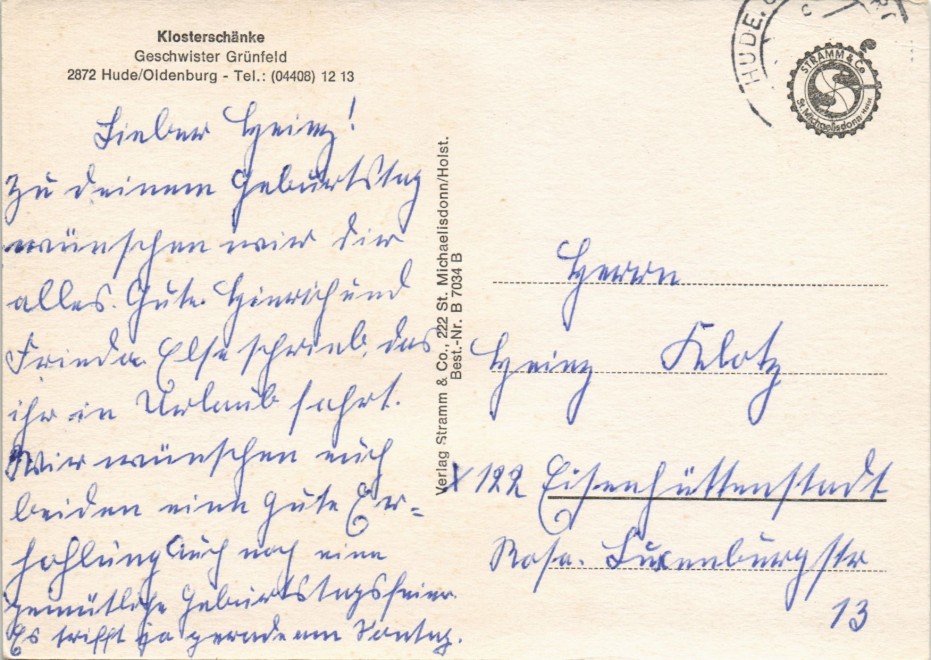 Klosterschänke
Geschwister Grünfeld
2872 Hude/Oldenburg - Tel.: (04408) 12 13
Lieber Heinz!
Zu deinem Geburtstag
wünschen wir dir
alles Gute. Hinrich und
Frieda. Else schrieb, das
ihr in Urlaub fahrt.
Wir wünschen euch
beiden eine gute Er=
hohlung Auch noch eine
gemütliche Geburtstagsfeier.
Es trifft ja gerade am Sontag.
Verlag Stramm & Co., 222 St. Michaelisdonn/Holst.
Best.-Nr. B 7034 B
HUDE
STRAMM & Co
St. Michaelisdonn Holst
Herrn
Heinz Klotz
X 122 Eisenhüttenstadt
Rosa. Luxenburgstr
13